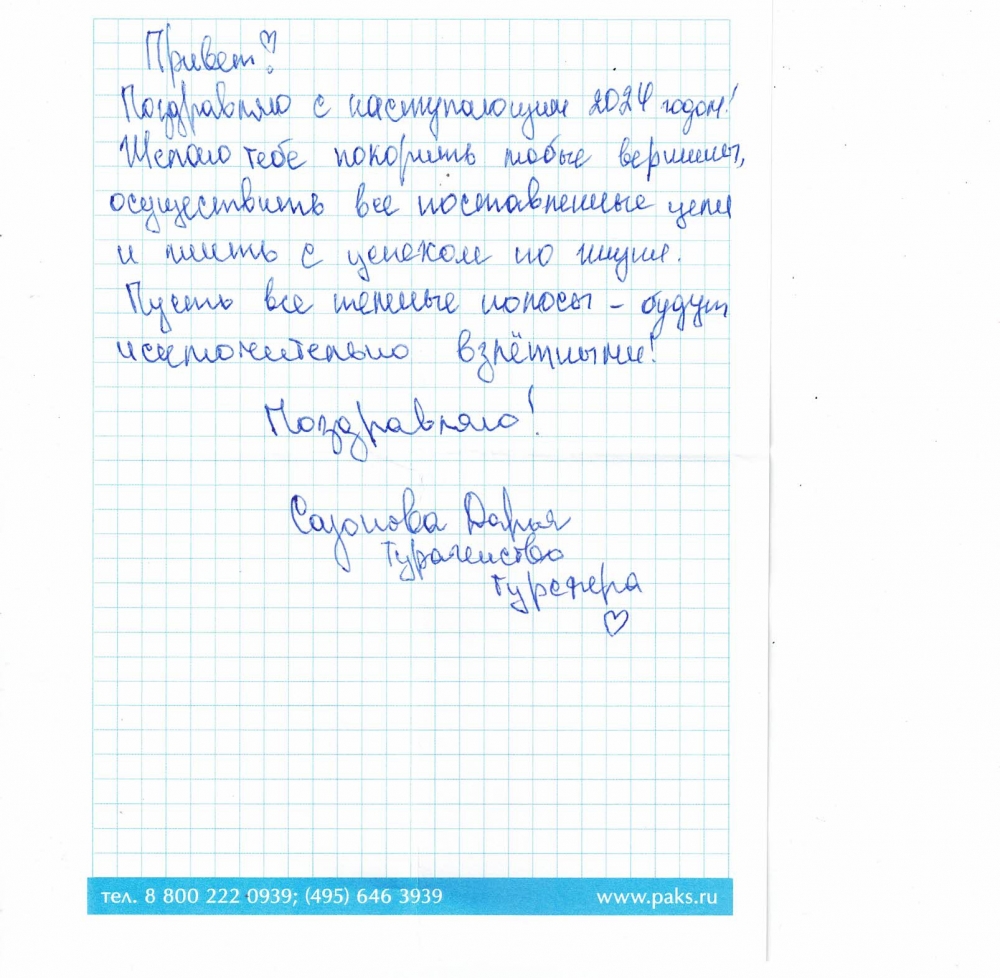 Привет!
Поздравляю с наступающим 2024 годом!
Желаю тебе покорить любые вершины,
осуществить все поставленные цели
и плыть с успехом по жизни.
Пусть все темные полосы – будут
исключительно взлётными!
Поздравляю!
Сазонова Дарья
Турагенство
Турсфера
♡
тел. 8 800 222 0939; (495) 646 3939 www.paks.ru